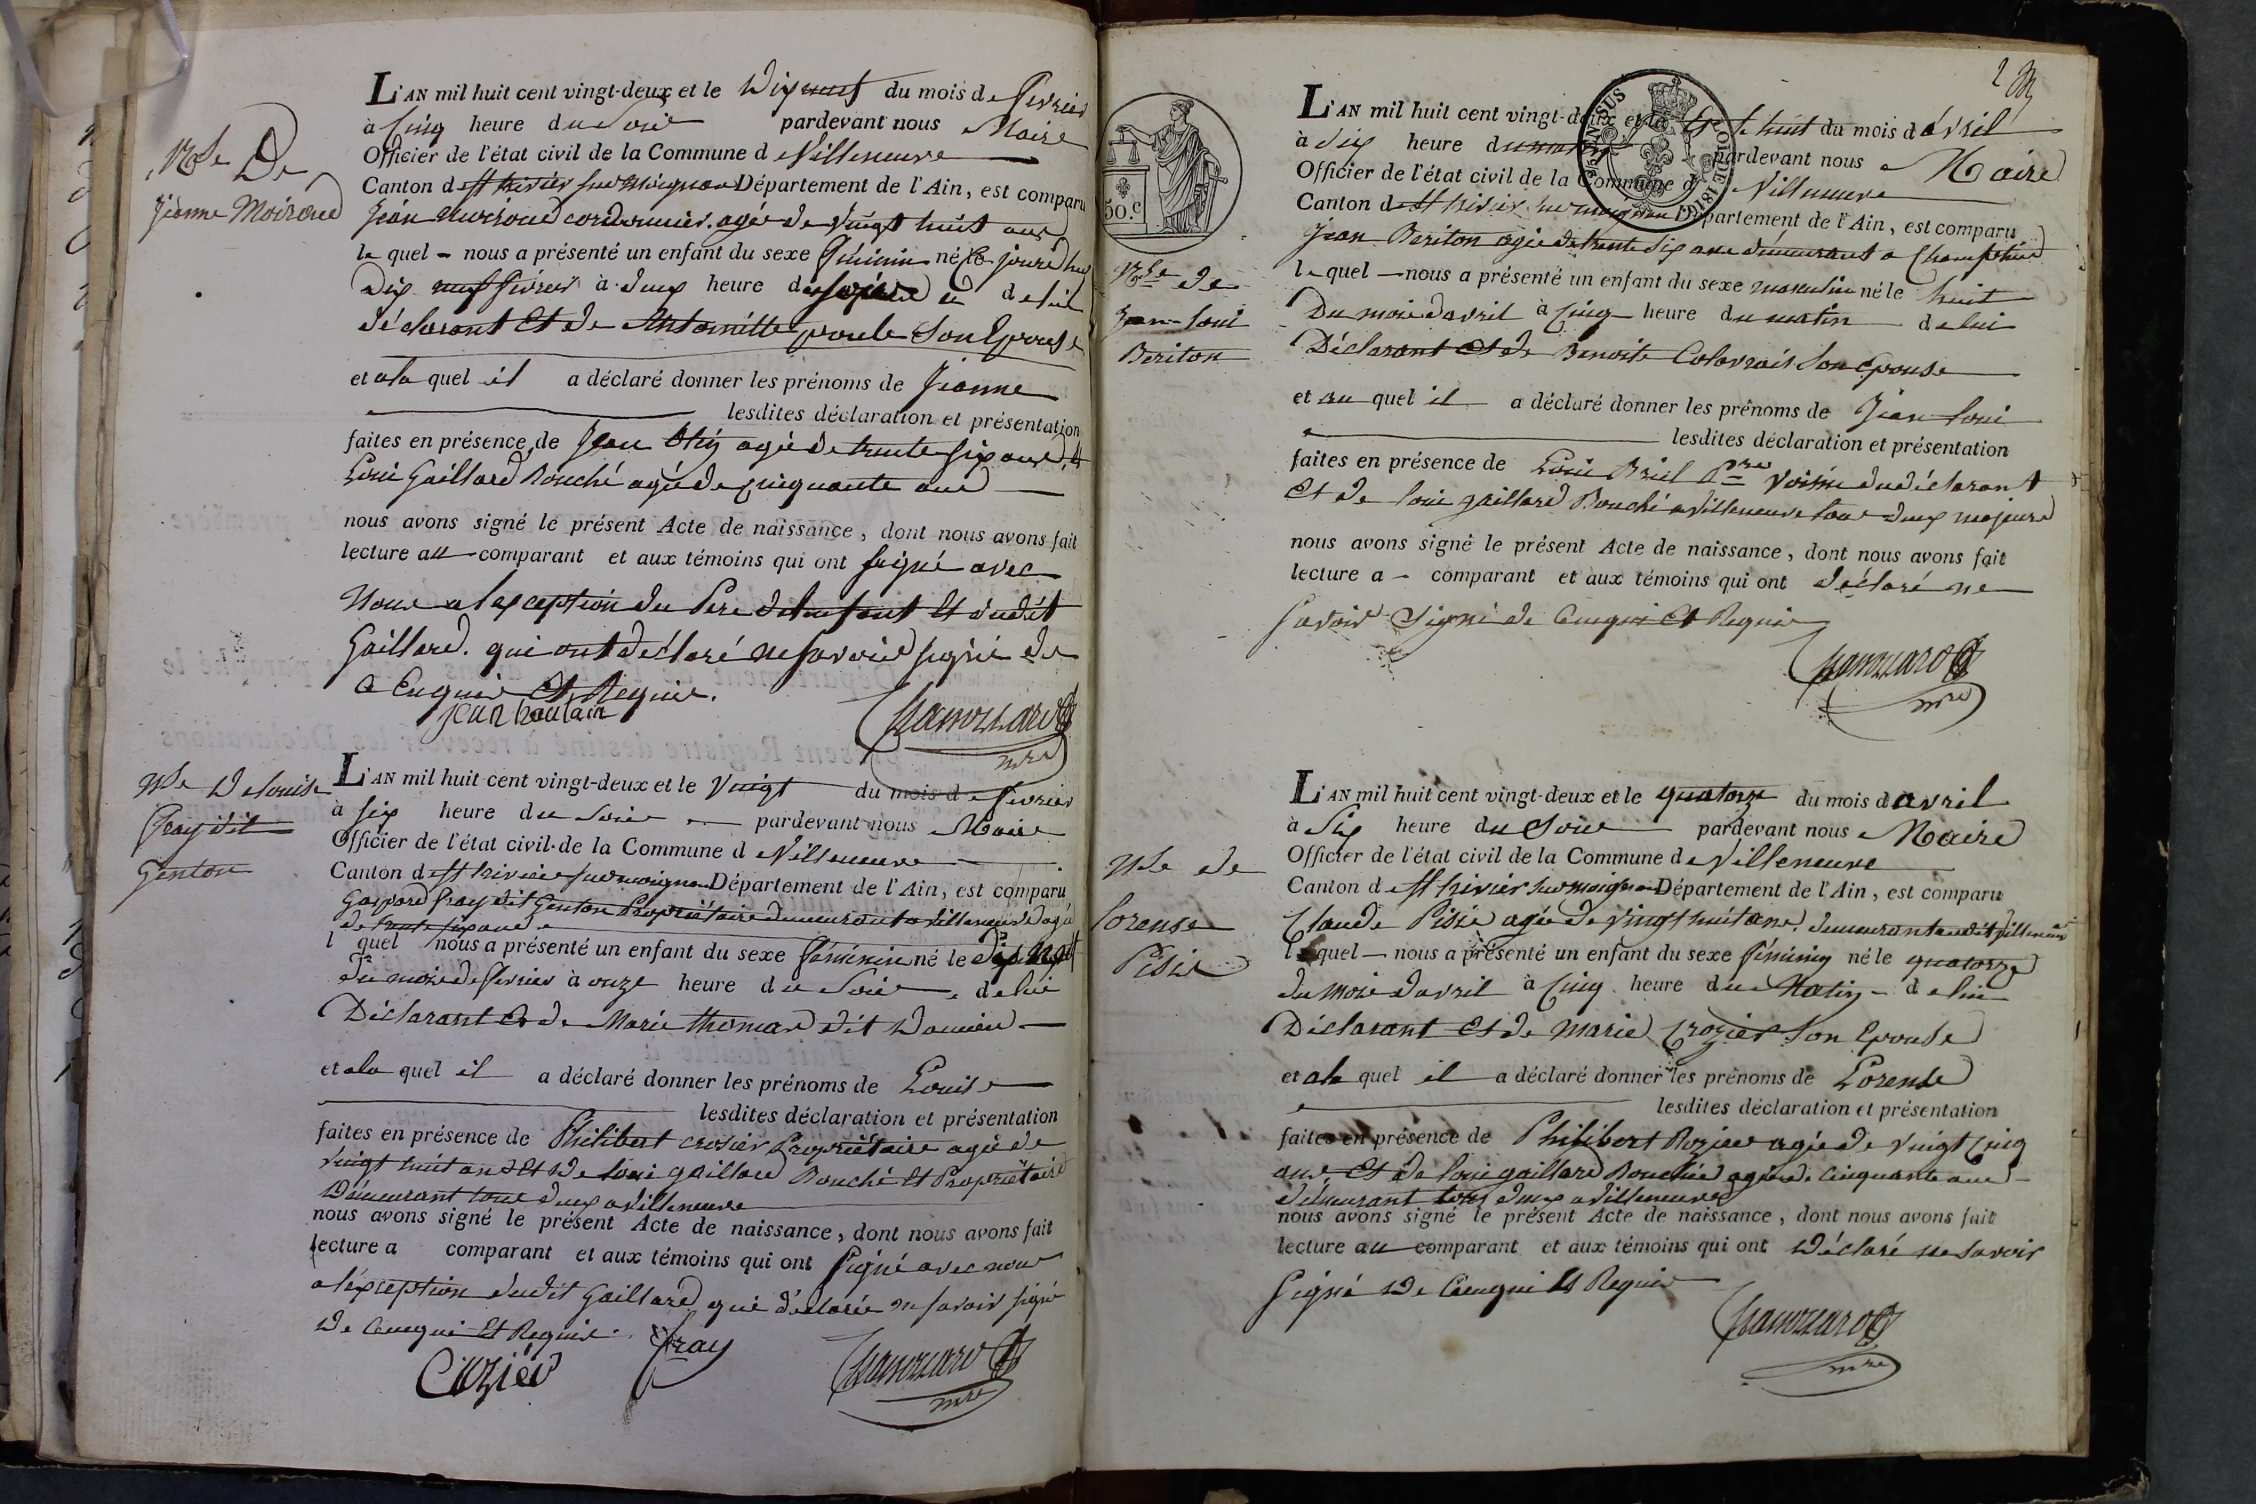 Nce De
Jeanne Moiroud
L'AN mil huit cent vingt-deux et le Dixneuf du mois de fevrier
à Cinq heure du Soir pardevant nous Maire
Officier de l'état civil de la Commune de Villeneuve
Canton de St trivier sur moignan Département de l'Ain, est comparu
Jean moiroud cordonnier agée de vingt huit ans
le quel nous a présenté un enfant du sexe féminin né ce jourd'hui
Dix neuf fevrier à deux heure du de lui
déclarant Et de Antoinette poule Son Epouse
et ala quel il a déclaré donner les prénoms de Jeanne
lesdites déclaration et présentation
faites en présence de Jean agé de trente six ans, et
Loui Gaillard Bouché agé de cinquante ans
nous avons signé le présent Acte de naissance, dont nous avons fait
lecture au comparant et aux témoins qui ont signé avec
Nous a lexception du Pere delenfant Et dudit
Gaillard. qui ont déclaré ne savoir signé de
a Enquis Et Requis.
jean
mre
Nce De louise
fray dit
Genton
L'AN mil huit cent vingt-deux et le Vingt du mois de fevrier
à six heure du Soir pardevant nous Maire
Officier de l'état civil de la Commune de Villeneuve
Canton de St trivier sur moignan Département de l'Ain, est comparu
Gaspard fray dit Genton Propriétaire demeurant a villeneuve agé
de trente six ans
l quel nous a présenté un enfant du sexe féminin né le dix neuf
du mois de fevrier à onze heure du Soir de lui
Déclarant Et de Marie thomas dit Damien
et ala quel il a déclaré donner les prénoms de Louise
lesdites déclaration et présentation
faites en présence de Philibert crosier Propriétaire agé de
vingt huit ans Et De loui gaillard Bouché Et Propriétaire
Demeurant tous deux a villeneuve
nous avons signé le présent Acte de naissance, dont nous avons fait
lecture a comparant et aux témoins qui ont signé avec nous
a lexception dudit Gaillard qui déclaré ne savoir signé
De Cenquis Et Requis.
fray
Crozier
mre
2
SUS
LOI DE 1816
50.c
Nce de
Jean loui
Beriton
L'AN mil huit cent vingt-deux et le huit du mois d'avril
à dix heure du matin pardevant nous Maire
Officier de l'état civil de la Commune de Villeneuve
Canton de St trivier sur moignan Département de l'Ain, est comparu
Jean Beriton agée de trente six ans demeurant a
le quel nous a présenté un enfant du sexe masculin né le huit
Du mois davril à Cinq heure du matin de lui
Déclarant Et de Benoite Son Epouse
et au quel il a déclaré donner les prénoms de Jean loui
lesdites déclaration et présentation
faites en présence de Loui voisin dudéclarant
Et de loui gaillard Bouché a villeneuve tous deux majeurs
nous avons signé le présent Acte de naissance, dont nous avons fait
lecture a comparant et aux témoins qui ont déclaré ne
savoir Signé de Cenquis Et Requis
mre
Nce de
lorense
Pisie
L'AN mil huit cent vingt-deux et le quatorze du mois d avril
à Six heure du Soir pardevant nous Maire
Officier de l'état civil de la Commune de Villeneuve
Canton de St trivier sur moignan Département de l'Ain, est comparu
Claude Pisie agée de vingt huit ans. demeurant audit villeneuve
le quel nous a présenté un enfant du sexe féminin né le quatorze
du mois davril à Cinq heure du Matin de lui
Déclarant Et de Marie Crozier Son Epouse
et ala quel il a déclaré donner les prénoms de Lorense
lesdites déclaration et présentation
faites en présence de Philibert Rozier agée de vingt Cinq
ans, Et de loui gaillard Bouchée agée de Cinquante ans
demeurant tous deux a villeneuve
nous avons signé le présent Acte de naissance, dont nous avons fait
lecture au comparant et aux témoins qui ont Déclaré ne savoir
signé De Cenquis Et Requis
mre